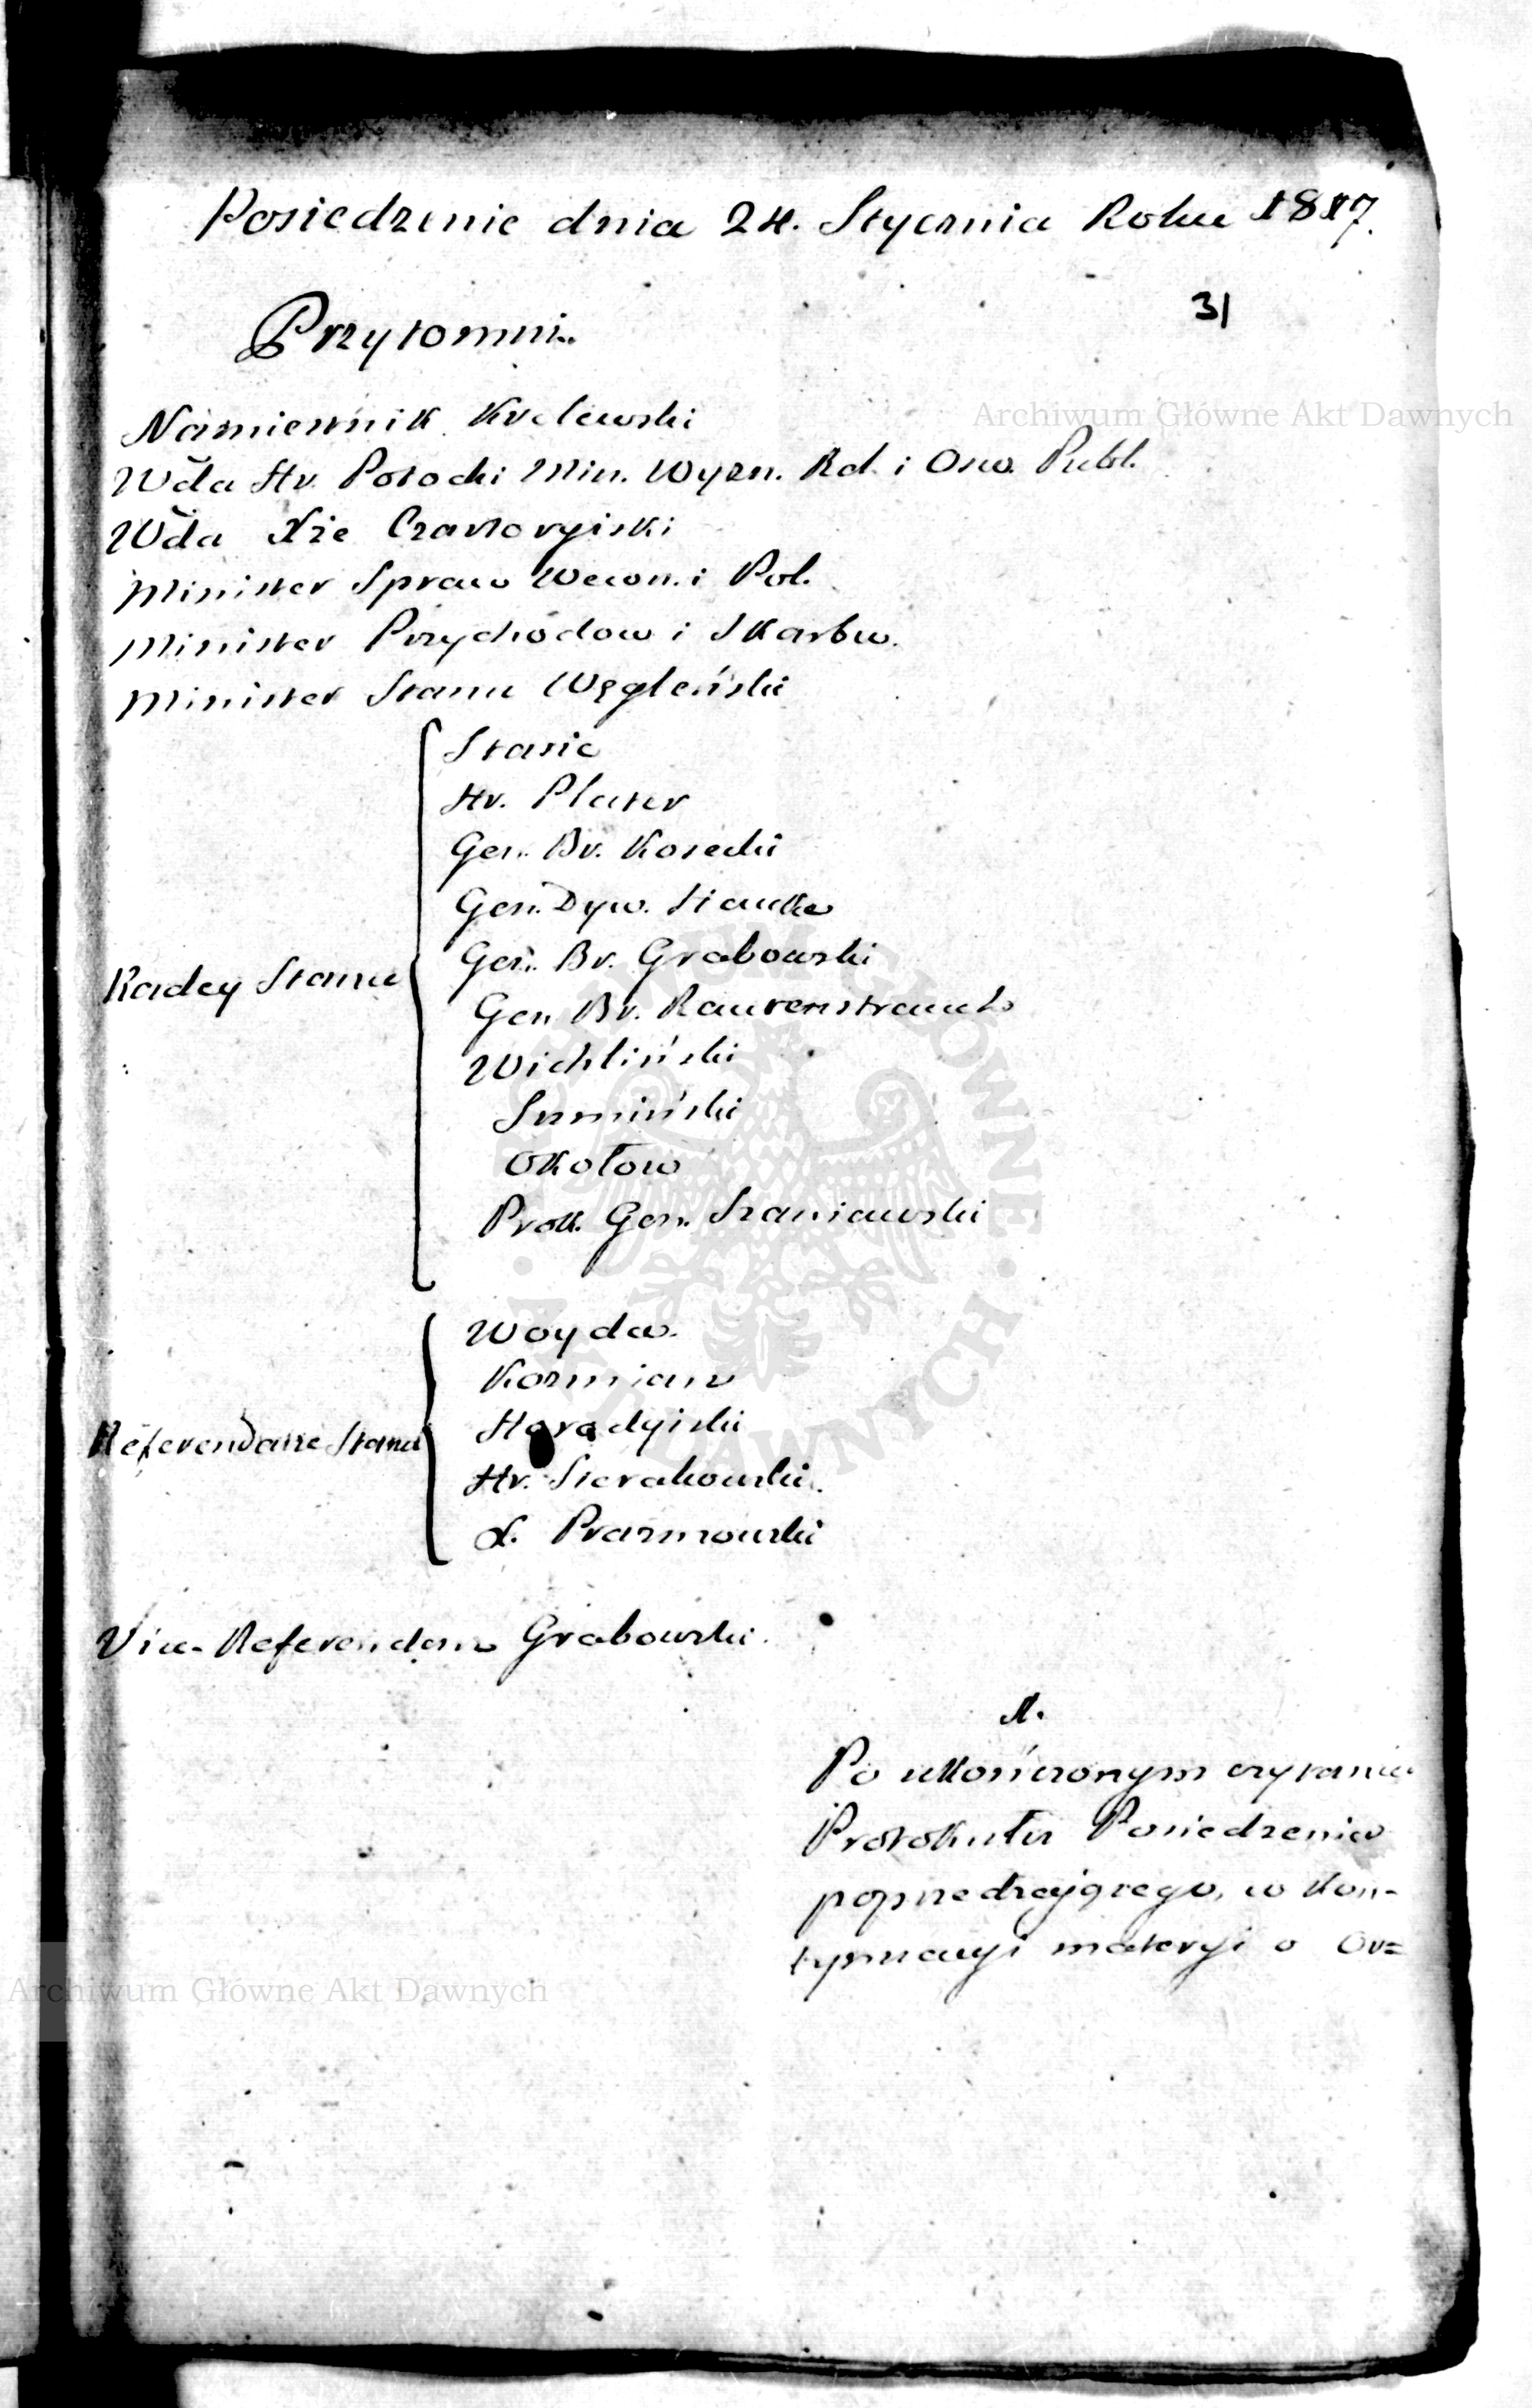 Posiedzenie dnia 24. Stycznia Roku 1817.
31
Przytomni.
Archiwum Główne Akt Dawnych
Namiestnik Krolewski
Wda Hr. Potocki Min. Wyzn. Rel. i Osw. Publ.
Wda Xże Czartoryiski
Minister Spraw Wewn. i Pol.
Minister Przychodow i Skarbu.
Minister Stanu Węgleński
Radcy Stanu
Stasic
Hr. Plater
Gen. Br. Kosecki
Gen. Dyw. Hauke
Gen. Br. Grabowski
Gen Br. Rautenstrauch
Wichliński
Sumiński
Okołow
Prok. Gen. Szaniawski
Referendarze Stanu
Woyda.
Kozmian
Horodyiski
Hr. Sierakowski.
X. Prazmowski
Vice-Referendarz Grabowski.
1.
Po ukończonym czytaniu
Protokułu Posiedzenia
poprzedzaiącego, w kon-
tynuacyi materyi o Or=
Archiwum Główne Akt Dawnych
ARCHIWUM GŁÓWNE · AKT DAWNYCH ·